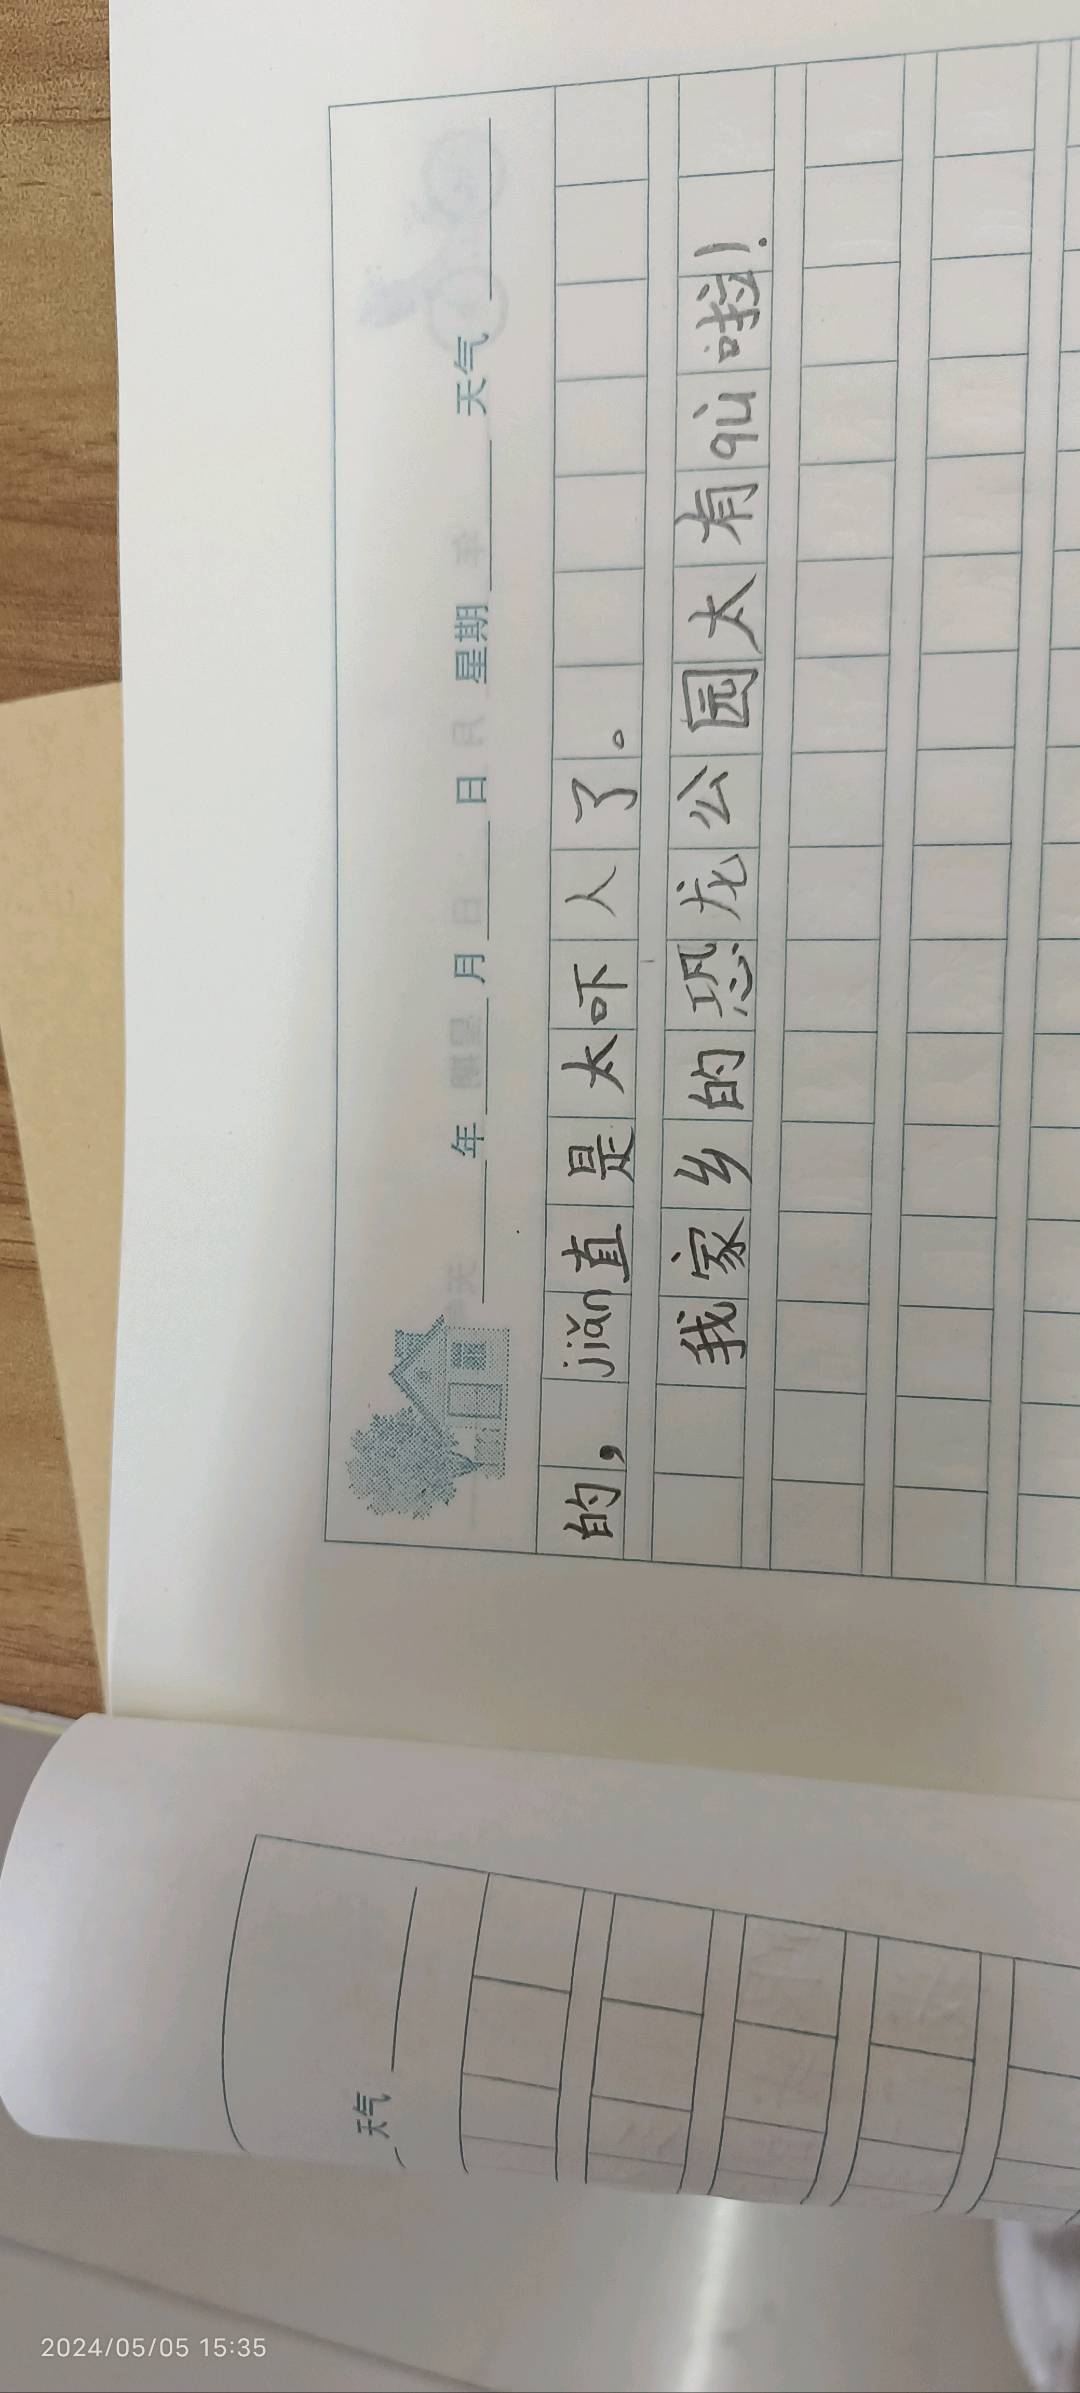 年 月 日 星期 天气
的，jiǎn直是太吓人了。
我家乡的恐龙公园太有qù啦！
天气
2024/05/05 15:35